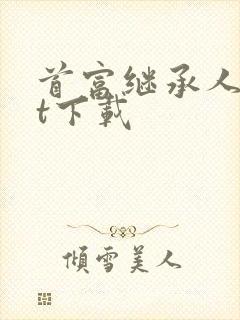 首富继承人
t下载
倾雪美人